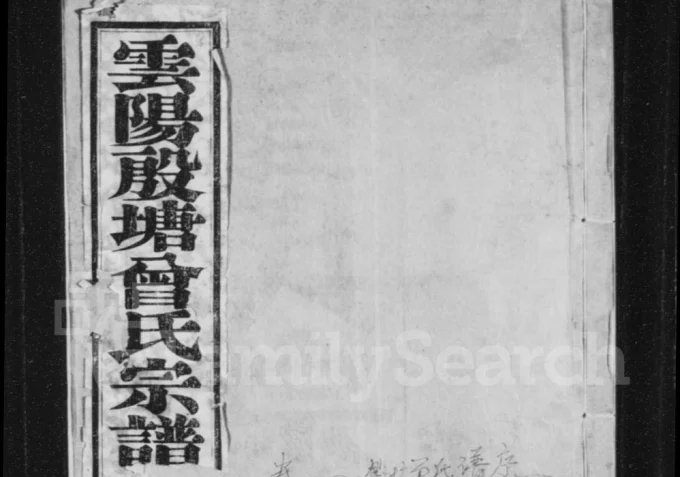 雲陽殷塘曾氏宗譜
FamilySearch